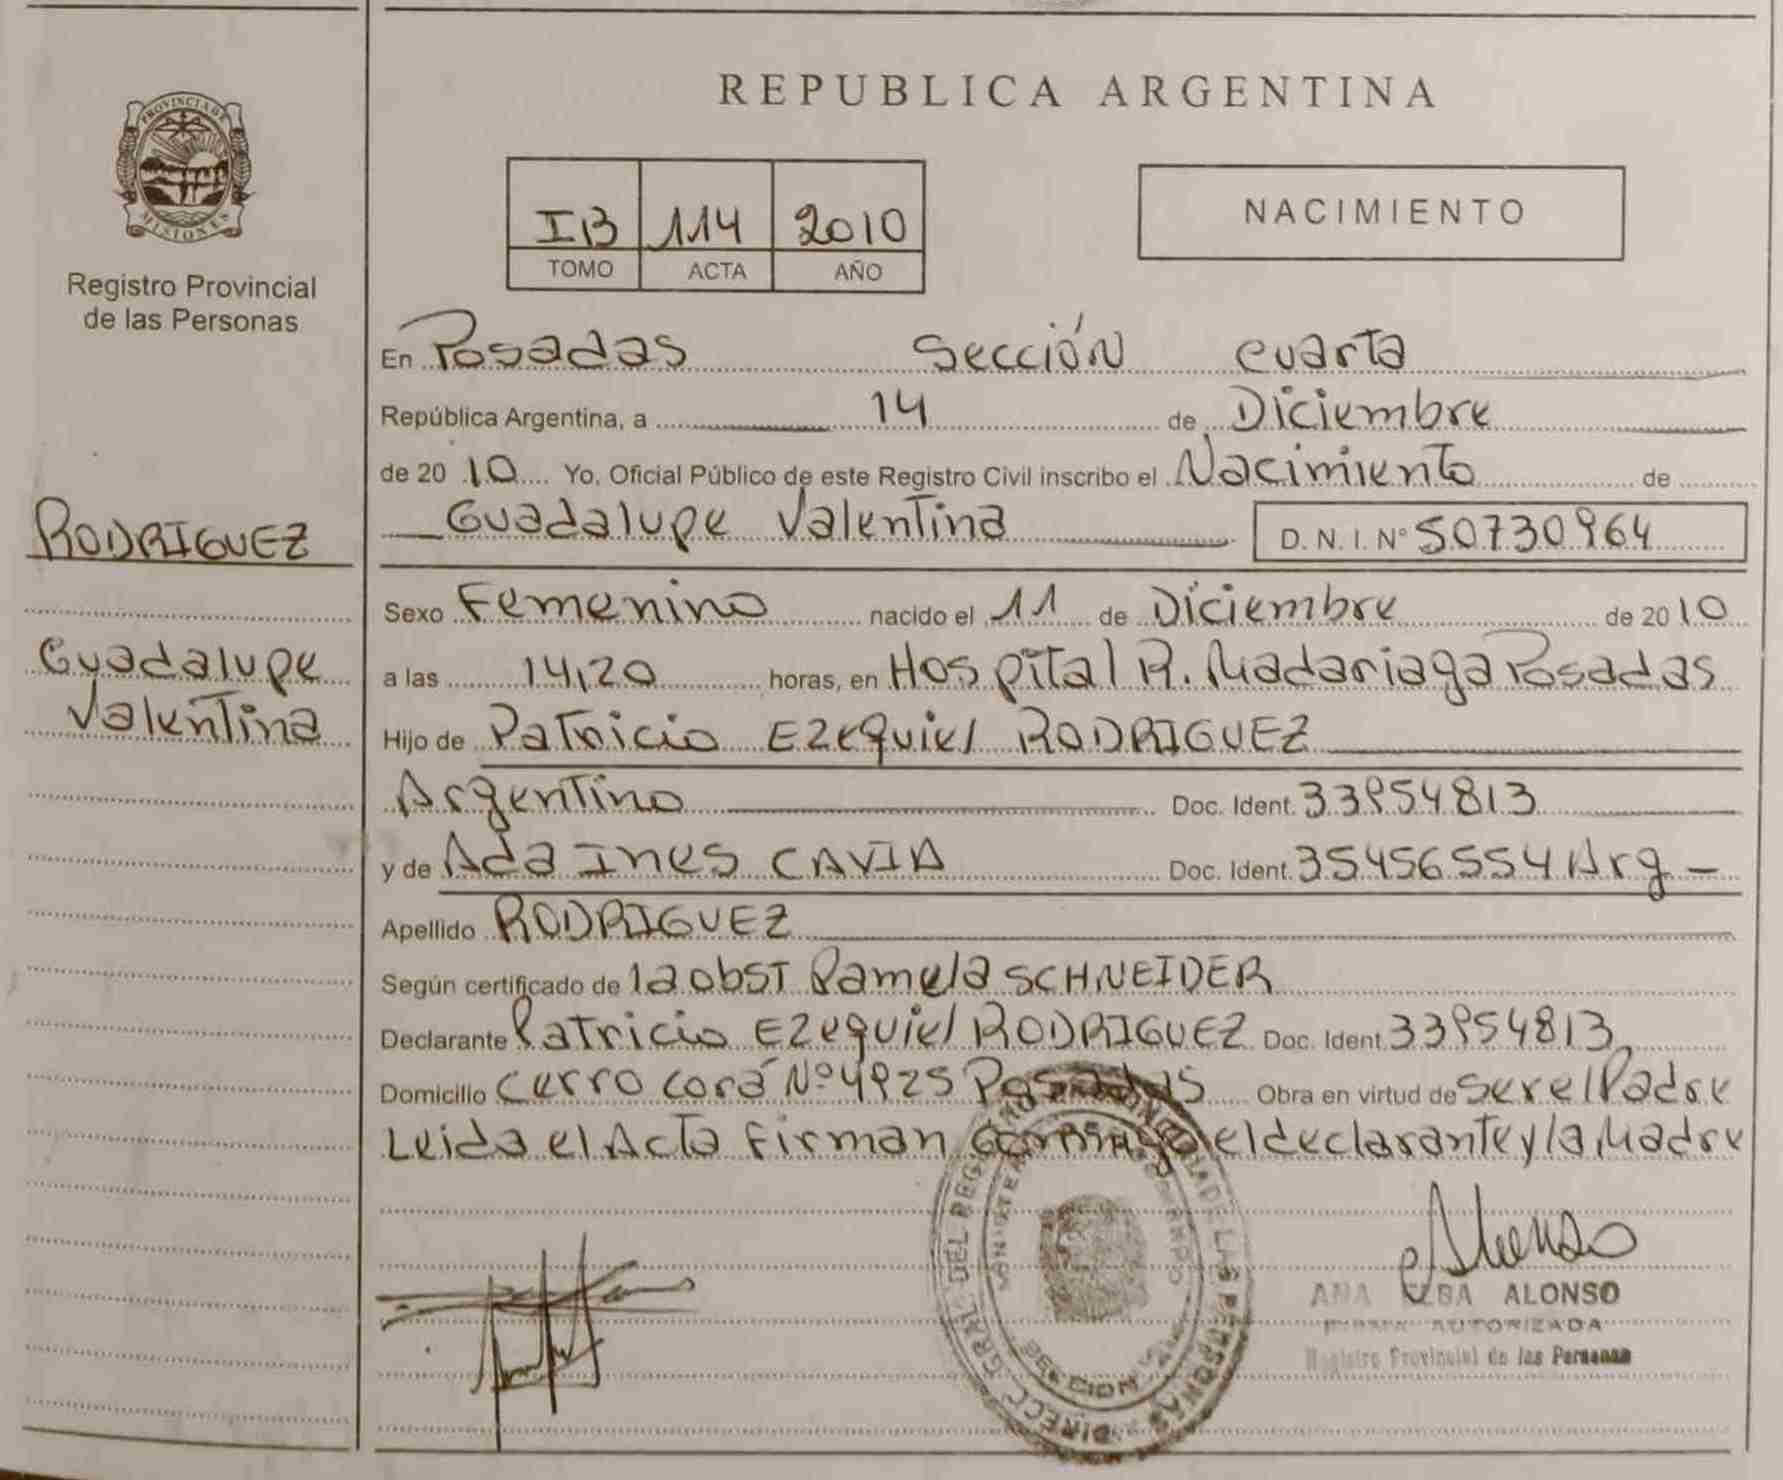 REPUBLICA ARGENTINA
PROVINCIA DE
MISIONES
Registro Provincial
de las Personas
IB 114 2010
TOMO ACTA AÑO
NACIMIENTO
En Posadas Sección cuarta
República Argentina, a 14 de Diciembre
de 2010 Yo, Oficial Público de este Registro Civil inscribo el Nacimiento de
Guadalupe Valentina D. N. I. Nº 50730964
RODRIGUEZ
Guadalupe
Valentina
Sexo Femenino nacido el 11 de Diciembre de 2010
a las 14,20 horas, en Hospital R. Madariaga Posadas
Hijo de Patricio Ezequiel RODRIGUEZ
Argentino Doc. Ident. 33954813
y de Ada Ines CAVIA Doc. Ident. 35456554 Arg -
Apellido RODRIGUEZ
Según certificado de la obst Pamela SCHNEIDER
Declarante Patricio Ezequiel RODRIGUEZ Doc. Ident 33954813
Domicilio Cerro Corá Nº 4925 Posadas Obra en virtud de ser el Padre
Leida el Acta Firman conmigo el declarante y la Madre
DIRECC. GRAL. DEL REG. DE LAS PERSONAS
Alonso
ANA ELBA ALONSO
FIRMA AUTORIZADA
Registro Provincial de las Personas